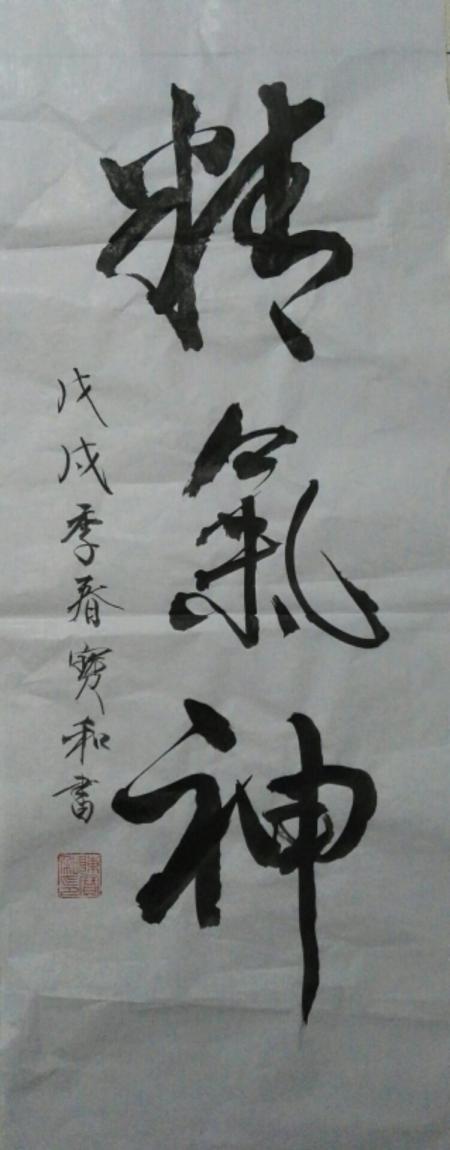 精氣神
戊戌季春寶和書